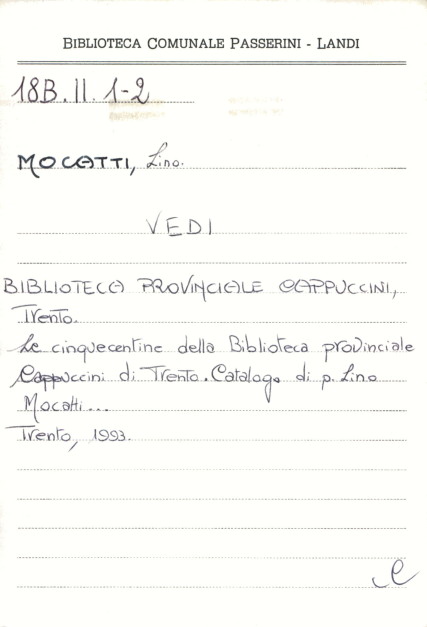 BIBLIOTECA COMUNALE PASSERINI - LANDI
18B. II. 1-2
MOCATTI, Lino.
VEDI
BIBLIOTECA PROVINCIALE CAPPUCCINI,
Trento.
Le cinquecentine della Biblioteca provinciale
Cappuccini di Trento. Catalogo di p. Lino
Mocatti...
Trento, 1993.